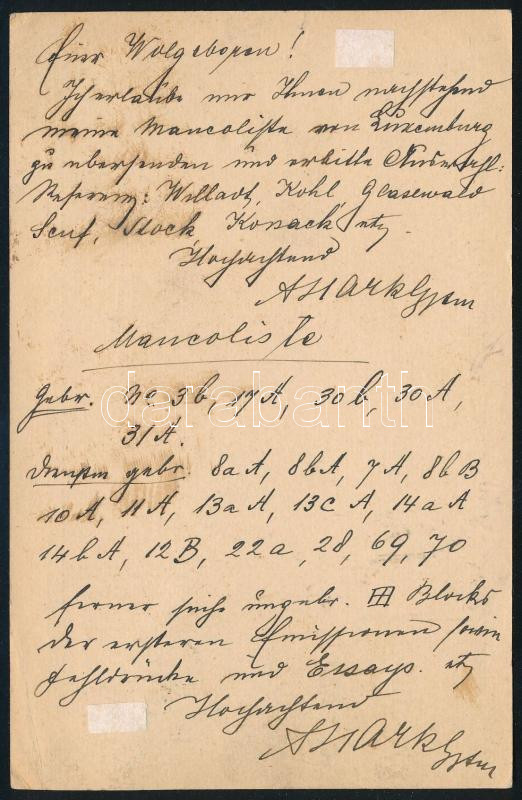 Euer Wolgeboren!
Ich erlaube mir Ihnen nachstehend
meine Mancoliste von Luxemburg
zu übersenden und erbitte Auswahl:
Referenz: Willadt, Kohl, Glasewald
Senf, Stock, Kosack, etz.
Hochachtend
Mancoliste
Gebr. No 3b, 17A, 30b, 30A,
31A.
Dienstm gebr. 8aA, 8bA, 7A, 8bB
10A, 11A, 13aA, 13cA, 14aA
14bA, 12B, 22a, 28, 69, 70
ferner suche ungebr. Blocks
der ersteren Emissionen sowie
Fehldrücke und Essays. etz
Hochachtend
darabanth